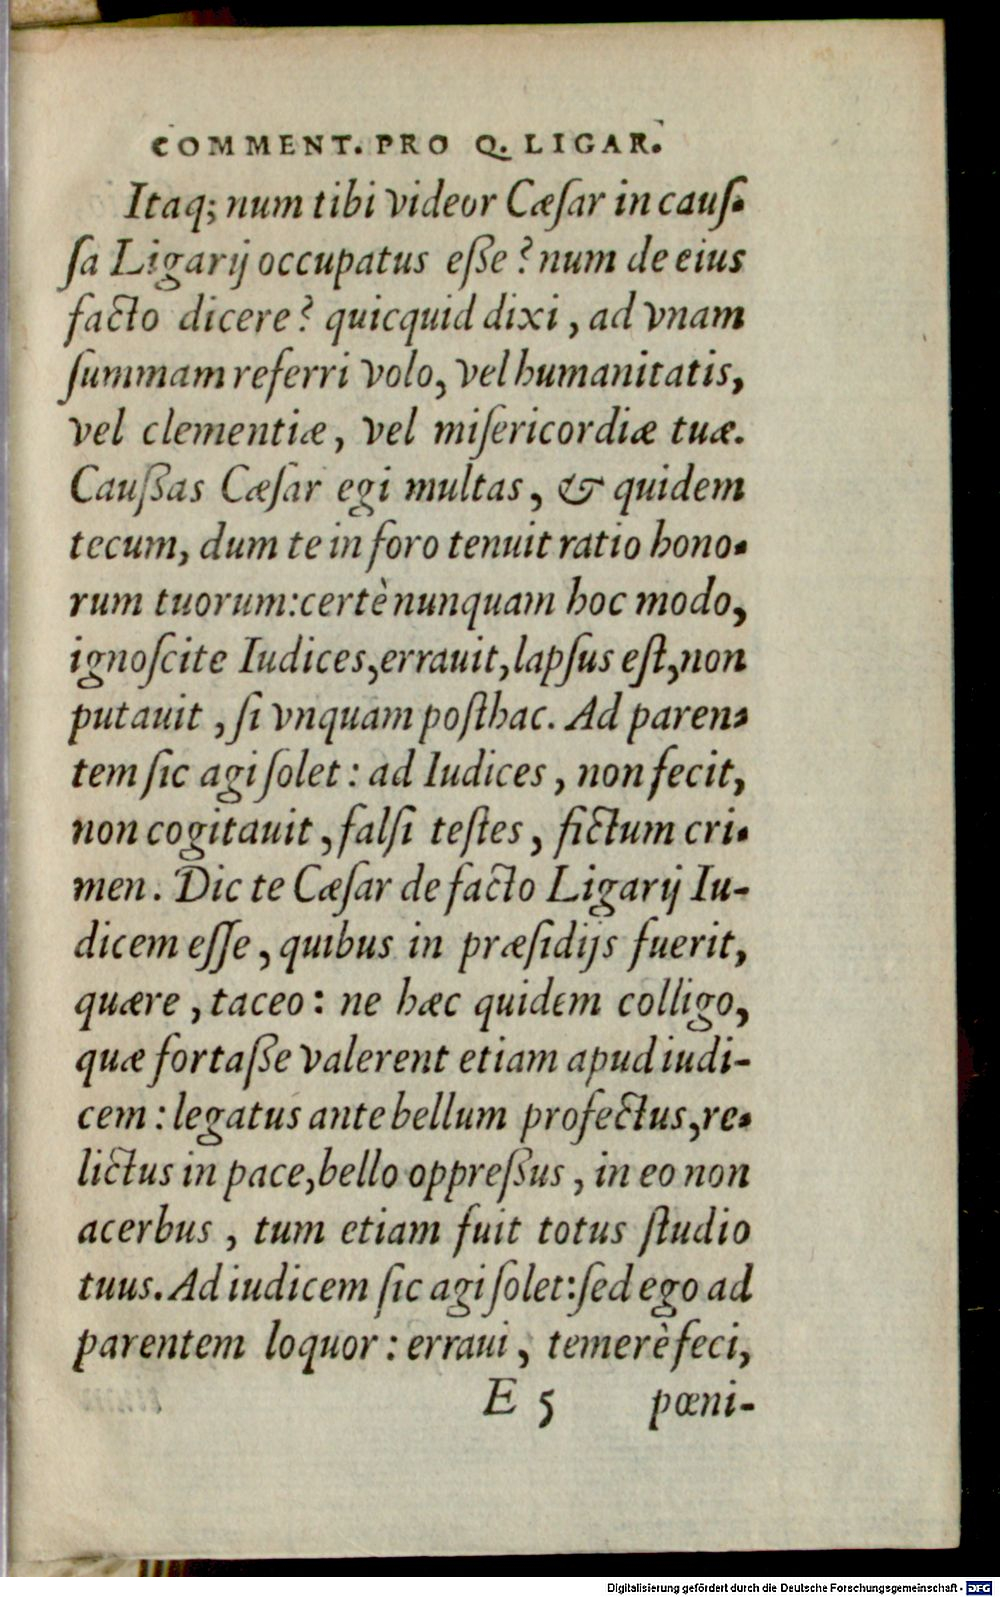 COMMENT. PRO Q. LIGAR.
Itaq; num tibi videor Cæſar in cauſ-
ſa Ligarij occupatus eſſe? num de eius
facto dicere? quicquid dixi, ad vnam
ſummam referri volo, vel humanitatis,
vel clementiæ, vel miſericordiæ tuæ.
Cauſſas Cæſar egi multas, & quidem
tecum, dum te in foro tenuit ratio hono-
rum tuorum: certè nunquam hoc modo,
ignoſcite Iudices, errauit, lapſus eſt, non
putauit, ſi vnquam poſthac. Ad paren-
tem ſic agi ſolet: ad Iudices, non fecit,
non cogitauit, falſi teſtes, fictum cri-
men. Dic te Cæſar de facto Ligarij Iu-
dicem eſſe, quibus in præſidijs fuerit,
quære, taceo: ne hæc quidem colligo,
quæ fortaſſe valerent etiam apud iudi-
cem: legatus ante bellum profectus, re-
lictus in pace, bello oppreſſus, in eo non
acerbus, tum etiam fuit totus ſtudio
tuus. Ad iudicem ſic agi ſolet: ſed ego ad
parentem loquor: erraui, temerè feci,
E 5 pœni-
Digitalisierung gefördert durch die Deutsche Forschungsgemeinschaft - DFG